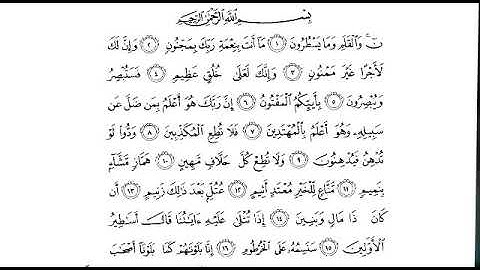 بِسْمِ اللَّهِ الرَّحْمَٰنِ الرَّحِيمِ
نٓ ۚ وَالْقَلَمِ وَمَا يَسْطُرُونَ ١ مَا أَنتَ بِنِعْمَةِ رَبِّكَ بِمَجْنُونٍ ٢ وَإِنَّ لَكَ
لَأَجْرًا غَيْرَ مَمْنُونٍ ٣ وَإِنَّكَ لَعَلَىٰ خُلُقٍ عَظِيمٍ ٤ فَسَتُبْصِرُ
وَيُبْصِرُونَ ٥ بِأَييِّكُمُ الْمَفْتُونُ ٦ إِنَّ رَبَّكَ هُوَ أَعْلَمُ بِمَن ضَلَّ عَن
سَبِيلِهِ وَهُوَ أَعْلَمُ بِالْمُهْتَدِينَ ٧ فَلَا تُطِعِ الْمُكَذِّبِينَ ٨ وَدُّوا لَوْ
تُدْهِنُ فَيُدْهِنُونَ ٩ وَلَا تُطِعْ كُلَّ حَلَّافٍ مَّهِينٍ ١٠ هَمَّازٍ مَّشَّآءٍ
بِنَمِيمٍ ١١ مَّنَّاعٍ لِّلْخَيْرِ مُعْتَدٍ أَثِيمٍ ١٢ عُتُلٍّ بَعْدَ ذَٰلِكَ زَنِيمٍ ١٣ أَن
كَانَ ذَا مَالٍ وَبَنِينَ ١٤ إِذَا تُتْلَىٰ عَلَيْهِ ءَايَٰتُنَا قَالَ أَسَٰطِيرُ
الْأَوَّلِينَ ١٥ سَنَسِمُهُ عَلَى الْخُرْطُومِ ١٦ إِنَّا بَلَوْنَٰهُمْ كَمَا بَلَوْنَآ أَصْحَٰبَ